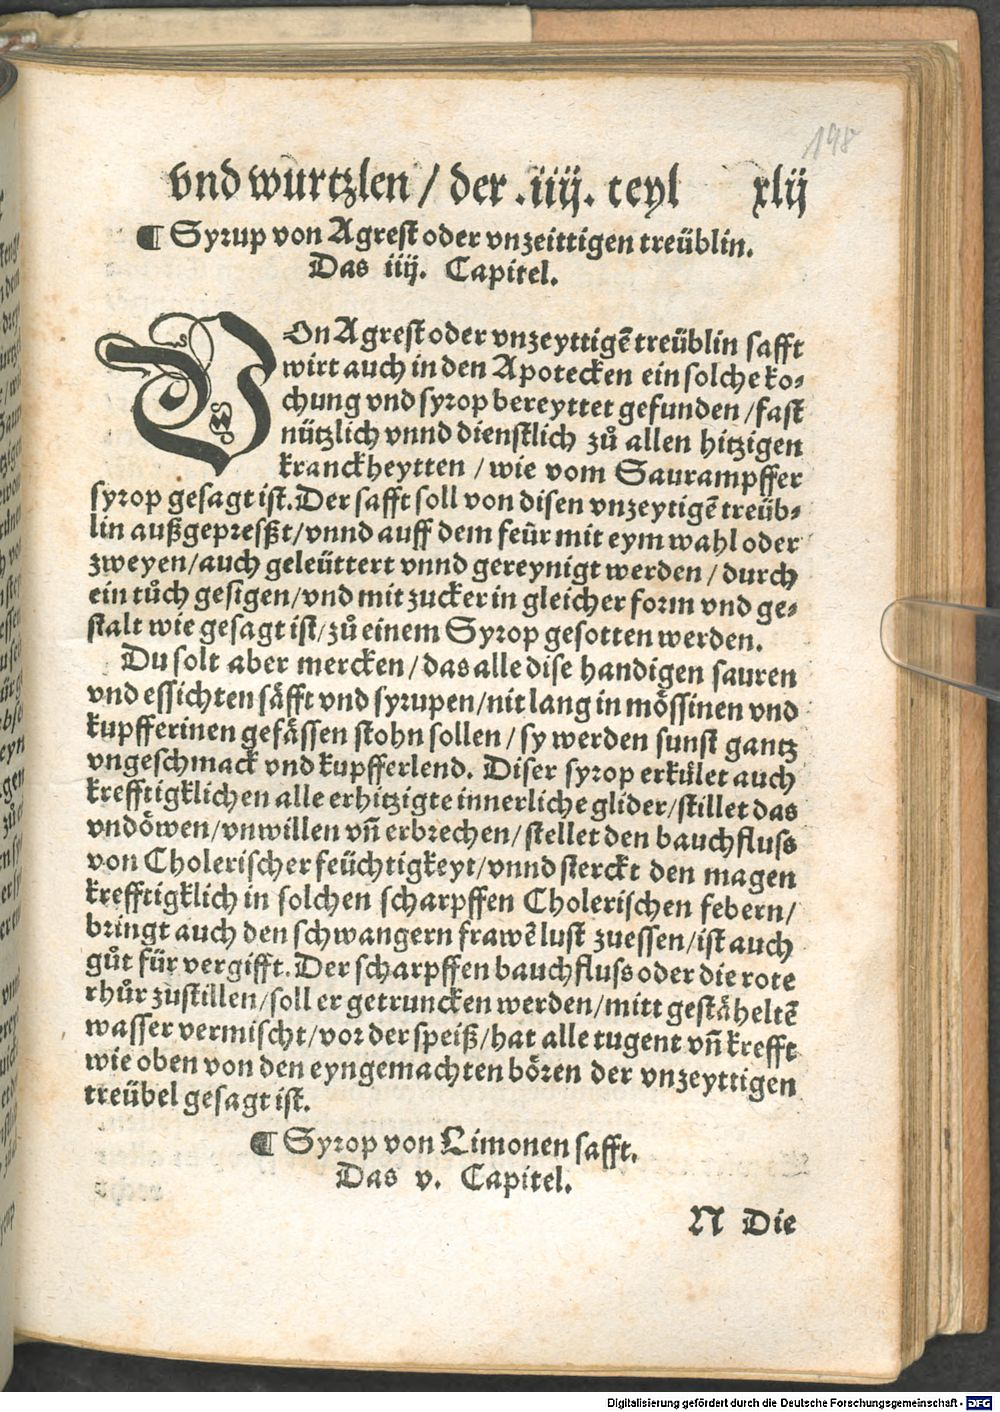 198
vnd wurtzlen / der .iiij. teyl xlij
¶ Syrup von Agrest oder vnzeittigen treüblin.
Das iiij. Capitel.
VOn Agrest oder vnzeyttigē treüblin safft
wirt auch in den Apotecken ein solche ko⸗
chung vnd syrop bereyttet gefunden / fast
nützlich vnnd dienstlich zů allen hitzigen
kranckheytten / wie vom Saurampffer
syrop gesagt ist. Der safft soll von disen vnzeytigē treüb⸗
lin außgepresßt / vnnd auff dem feür mit eym wahl oder
zweyen / auch geleüttert vnnd gereynigt werden / durch
ein tůch gesigen / vnd mit zucker in gleicher form vnd ge⸗
stalt wie gesagt ist / zů einem Syrop gesotten werden.
Du solt aber mercken / das alle dise handigen sauren
vnd essichten säfft vnd syrupen / nit lang in mössinen vnd
kupfferinen gefässen stohn sollen / sy werden sunst gantz
vngeschmack vnd kupfferlend. Diser syrop erkület auch
krefftigklichen alle erhitzigte innerliche glider / stillet das
vndöwen / vnwillen vñ erbrechen / stellet den bauchfluss
von Cholerischer feüchtigkeyt / vnnd sterckt den magen
krefftigklich in solchen scharpffen Cholerischen febern /
bringt auch den schwangern frawē lust zuessen / ist auch
gůt für vergifft. Der scharpffen bauchfluss oder die rote
rhůr zustillen / soll er getruncken werden / mitt gestäheltē
wasser vermischt / vor der speiß / hat alle tugent vñ krefft
wie oben von den eyngemachten bören der vnzeyttigen
treübel gesagt ist.
¶ Syrop von Limonen safft.
Das v. Capitel.
N Die
Digitalisierung gefördert durch die Deutsche Forschungsgemeinschaft - DFG